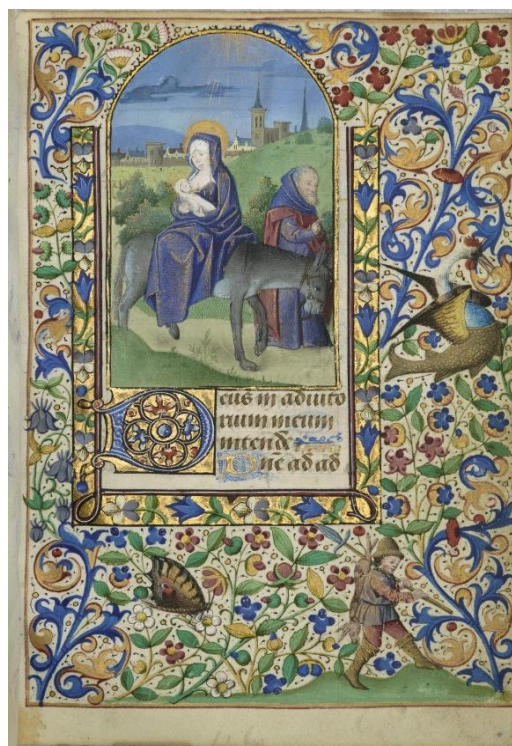 Deus in adiuto
rium meum
intend̄
Dn̄e ad ad